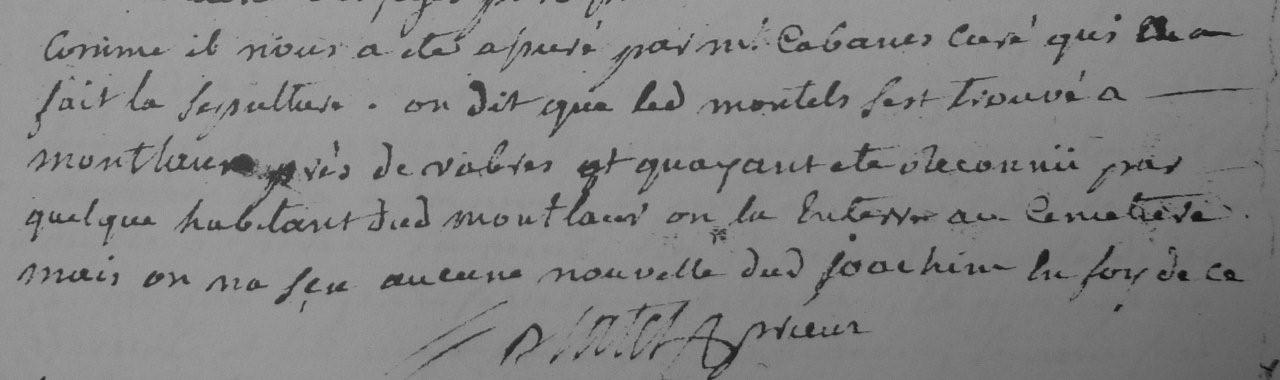 Comme il nous a eté assuré par mr. Cabanes curé qui en a
fait la sepulture. on dit que led montels sest trouvé a
montlaur près de vabres et quayant eté reconnü par
quelque habitant dud montlaur on la Enterré au Cemetiere.
mais on na sçu aucune nouvelle dud joachim En foy de ce
prieur